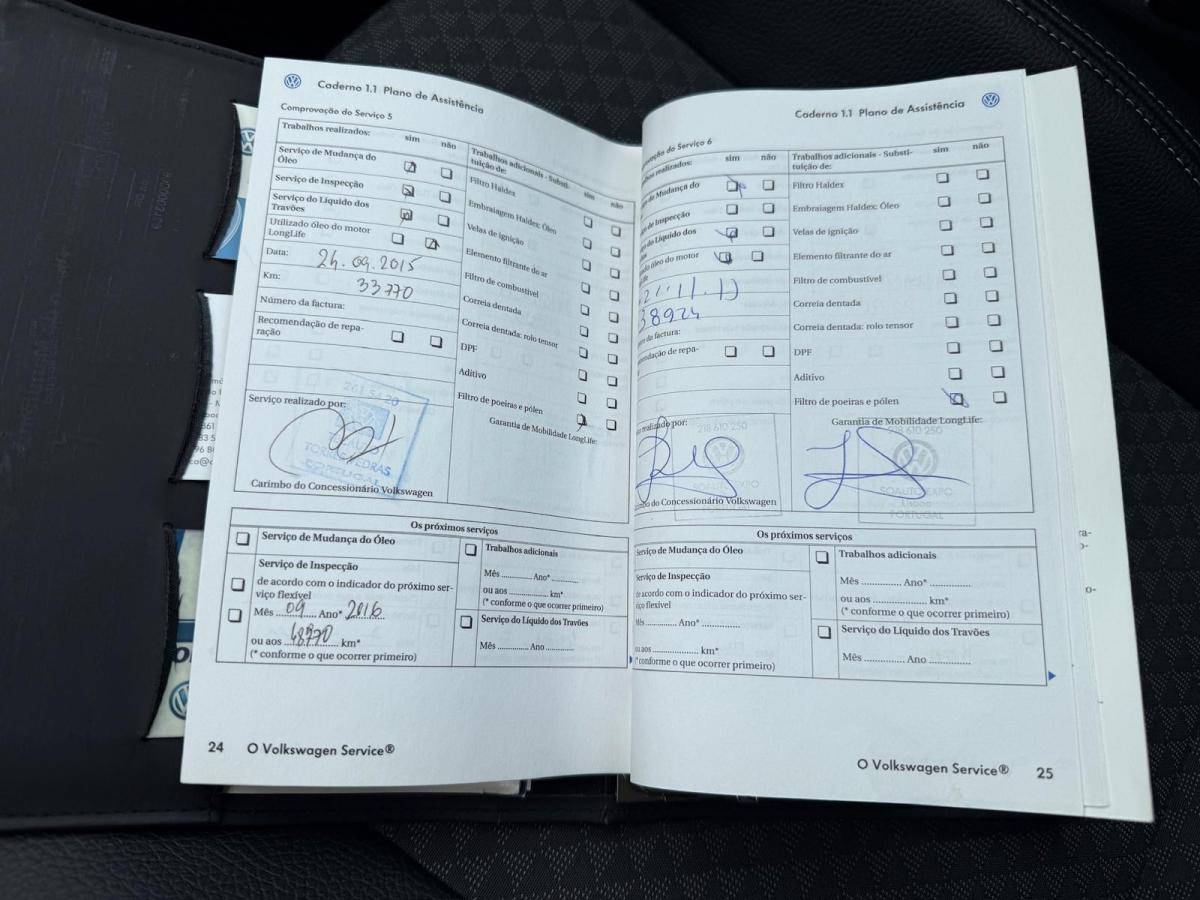 Caderno 1.1 Plano de Assistência
Comprovação do Serviço 5
Trabalhos realizados:
sim não
Serviço de Mudança do
Óleo
Serviço de Inspecção
Serviço do Líquido dos
Travões
Utilizado óleo do motor
LongLife
Data: 24.09.2015
Km: 33770
Número da factura:
Recomendação de repa-
ração
Serviço realizado por:
Carimbo do Concessionário Volkswagen
Trabalhos adicionais - Substi-
tuição de:
sim não
Filtro Haldex
Embraiagem Haldex: Óleo
Velas de ignição
Elemento filtrante do ar
Filtro de combustível
Correia dentada
Correia dentada: rolo tensor
DPF
Aditivo
Filtro de poeiras e pólen
Garantia de Mobilidade LongLife:
TORRES VEDRAS
PORTUGAL
Os próximos serviços
Serviço de Mudança do Óleo
Serviço de Inspecção
de acordo com o indicador do próximo ser-
viço flexível
Mês 09 Ano* 2016
ou aos 48770 km*
(* conforme o que ocorrer primeiro)
Trabalhos adicionais
Mês ............ Ano* ............
ou aos ............ km*
(* conforme o que ocorrer primeiro)
Serviço do Líquido dos Travões
Mês ............ Ano ............
24 O Volkswagen Service®
Caderno 1.1 Plano de Assistência
Serviço 6
realizados:
sim não
de Mudança do
Inspecção
do Líquido dos
óleo do motor
38924
da factura:
de repa-
realizado por:
218 610 250
SOAUTO EXPO
PORTUGAL
Carimbo do Concessionário Volkswagen
Trabalhos adicionais - Substi-
tuição de:
sim não
Filtro Haldex
Embraiagem Haldex: Óleo
Velas de ignição
Elemento filtrante do ar
Filtro de combustível
Correia dentada
Correia dentada: rolo tensor
DPF
Aditivo
Filtro de poeiras e pólen
Garantia de Mobilidade LongLife:
218 610 250
SOAUTO EXPO
PORTUGAL
Os próximos serviços
Serviço de Mudança do Óleo
Serviço de Inspecção
de acordo com o indicador do próximo ser-
viço flexível
Mês ............ Ano* ............
ou aos ............ km*
(* conforme o que ocorrer primeiro)
Trabalhos adicionais
Mês ............ Ano* ............
ou aos ............ km*
(* conforme o que ocorrer primeiro)
Serviço do Líquido dos Travões
Mês ............ Ano ............
O Volkswagen Service® 25